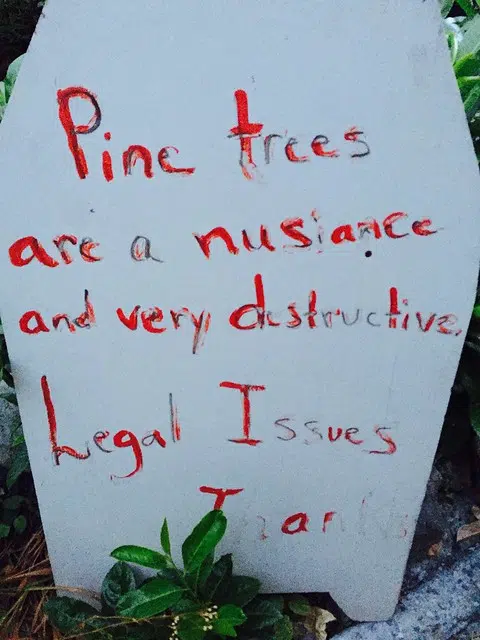 Pine trees
are a nusiance
and very destructive.
Legal Issues
Thank